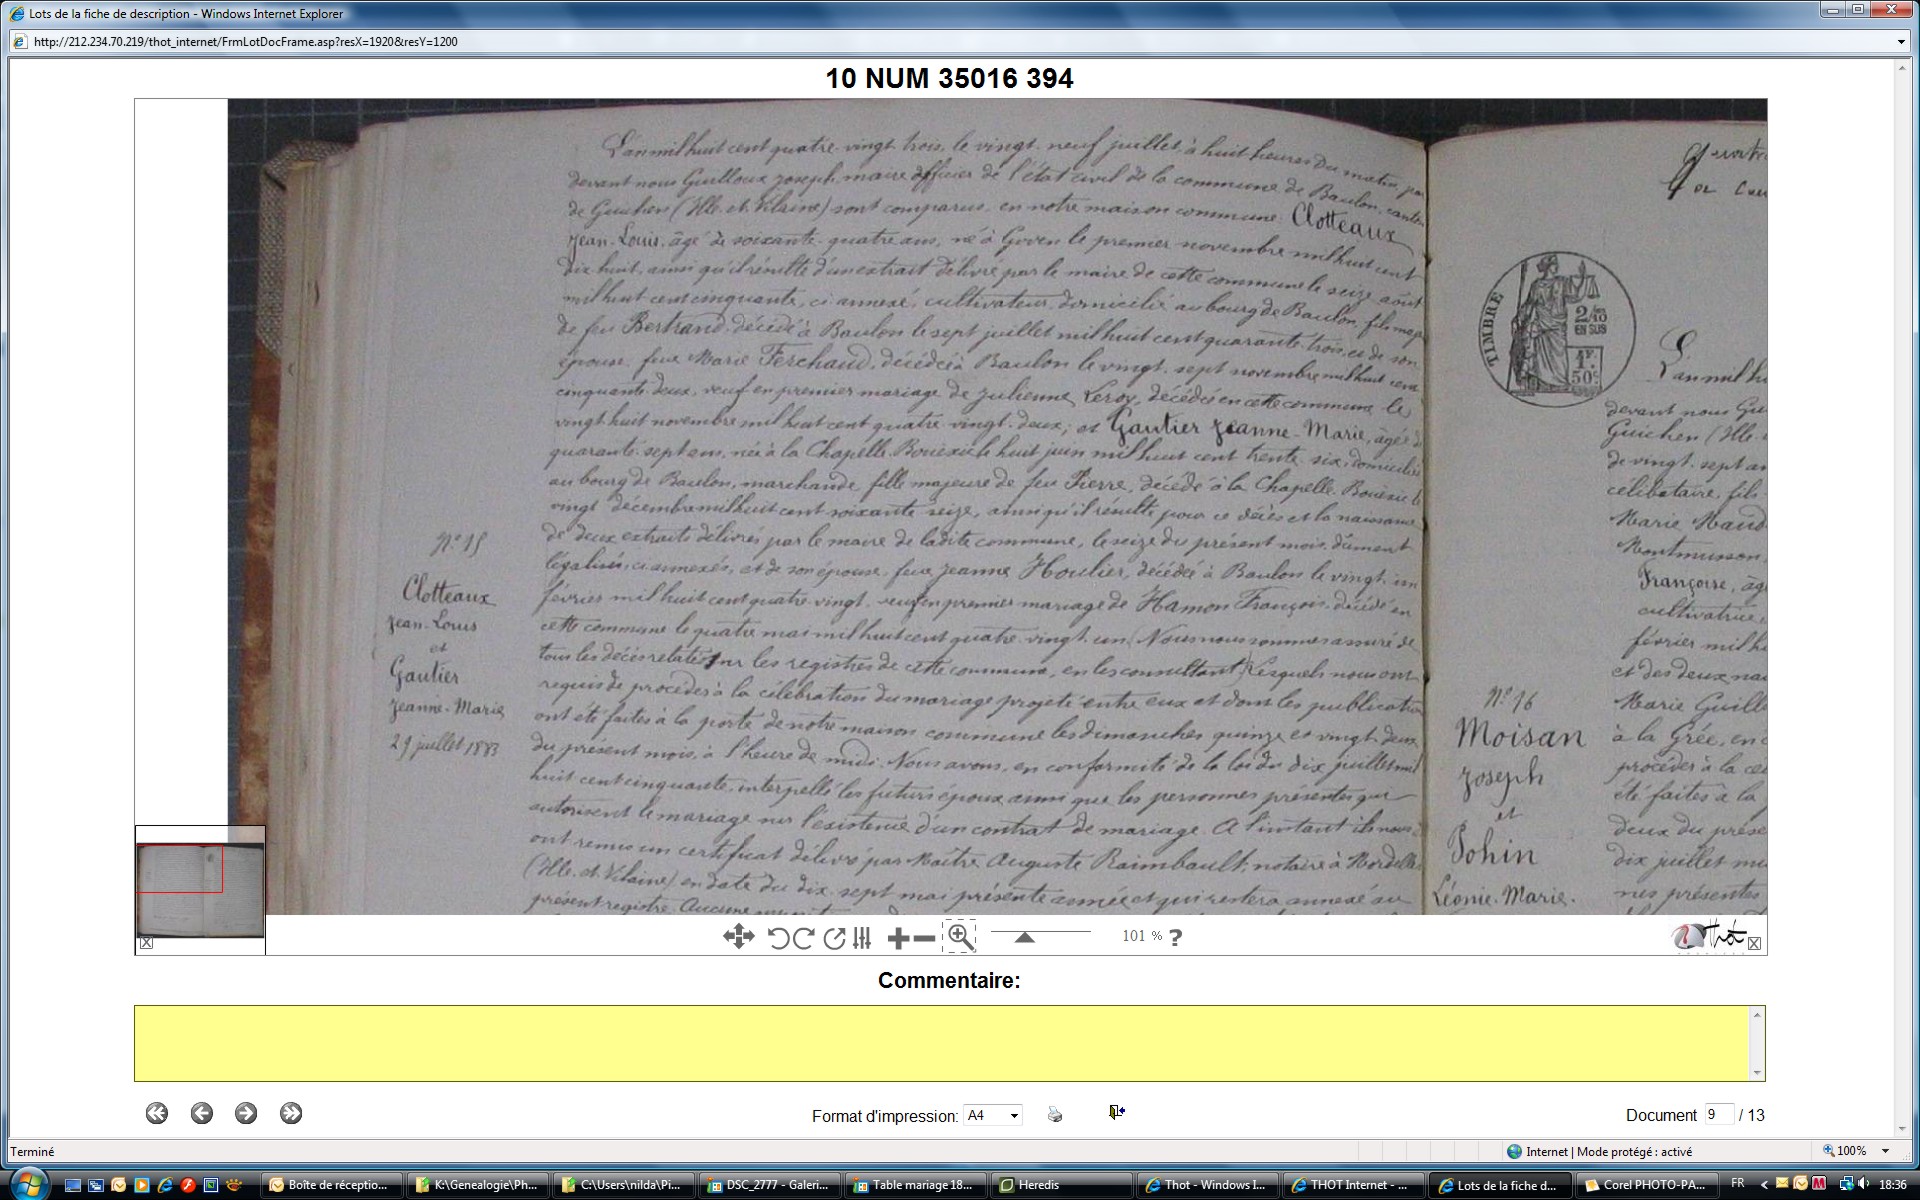 Lots de la fiche de description - Windows Internet Explorer
http://212.234.70.219/thot_internet/FrmLotDocFrame.asp?resX=1920&resY=1200
10 NUM 35016 394
L'an mil huit cent quatre-vingt-trois, le vingt-neuf juillet, à huit heures du matin, par
devant nous Guilloux Joseph, maire officier de l'état civil de la commune de Baulon, canton
de Guichen (Ille-et-Vilaine) sont comparus en notre maison commune Clotteaux
Jean-Louis, âgé de soixante-quatre ans, né à Goven le premier novembre mil huit cent
dix huit, ainsi qu'il résulte d'un extrait délivré par le maire de cette commune le seize août
mil huit cent cinquante, ci annexé, cultivateur, domicilié au bourg de Baulon, fils majr
de feu Bertrand, décédé à Baulon le sept juillet mil huit cent quarante-trois, et de son
épouse, feue Marie Ferchaud, décédée à Baulon le vingt-sept novembre mil huit cent
cinquante deux, veuf en premier mariage de Julienne Leroy, décédée en cette commune le
vingt-huit novembre mil huit cent quatre-vingt-deux; et Gautier Jeanne-Marie, âgée de
quarante-sept ans, née à la Chapelle-Bouëxic le huit juin mil huit cent trente-six, domiciliée
au bourg de Baulon, marchande, fille majeure de feu Pierre, décédé à la Chapelle-Bouëxic le
vingt décembre mil huit cent soixante seize, ainsi qu'il résulte pour ce décès et la naissance
de deux extraits délivrés par le maire de ladite commune, le seize du présent mois, dûment
légalisés, ci annexés, et de son épouse, feue Jeanne Houlier, décédée à Baulon le vingt-un
février mil huit cent quatre-vingt, veuf en premier mariage de Hamon François, décédé en
cette commune le quatre mai mil huit cent quatre-vingt-un. Nous nous sommes assuré de
tous les décès relatés sur les registres de cette commune, en les consultant, Lesquels nous ont
requis de procéder à la célébration du mariage projeté entre eux et dont les publications
ont été faites à la porte de notre maison commune les dimanches quinze et vingt-deux
du présent mois, à l'heure de midi. Nous avons, en conformité de la loi du dix juillet mil
huit cent cinquante, interpellé les futurs époux ainsi que les personnes présentes qui
autorisent le mariage sur l'existence d'un contrat de mariage. A l'instant ils nous
ont remis un certificat délivré par Maître Auguste Raimbault, notaire à Mordelles
(Ille-et-Vilaine) en date du dix-sept mai présente année et qui restera annexé au
présent registre. Aucune
N° 15
Clotteaux
Jean-Louis
et
Gautier
Jeanne-Marie
29 juillet 1883
TIMBRE
2/10
EN SUS
1F.
50C
L'an mil hu
devant nous Gu
Guichen (Ille-
de vingt-sept an
célibataire, fils
Marie Maud
Montmusson
Françoise, âg
cultivatrice,
février mil h
et des deux na
Marie Guill
à la Grée, en
procéder à la cé
été faites à la
deux du prése
dix juillet mi
nes présentes
N° 16
Moisan
Joseph
et
Pohin
Léonie-Marie.
101 % ?
Thot
Commentaire:
Format d'impression: A4
Document 9 / 13
Terminé
Internet | Mode protégé : activé
100%
Boîte de réceptio...
K:\Genealogie\Ph...
C:\Users\nilda\Pi...
DSC_2777 - Galeri...
Table mariage 18...
Heredis
Thot - Windows I...
THOT Internet - ...
Lots de la fiche d...
Corel PHOTO-PA...
FR
18:36